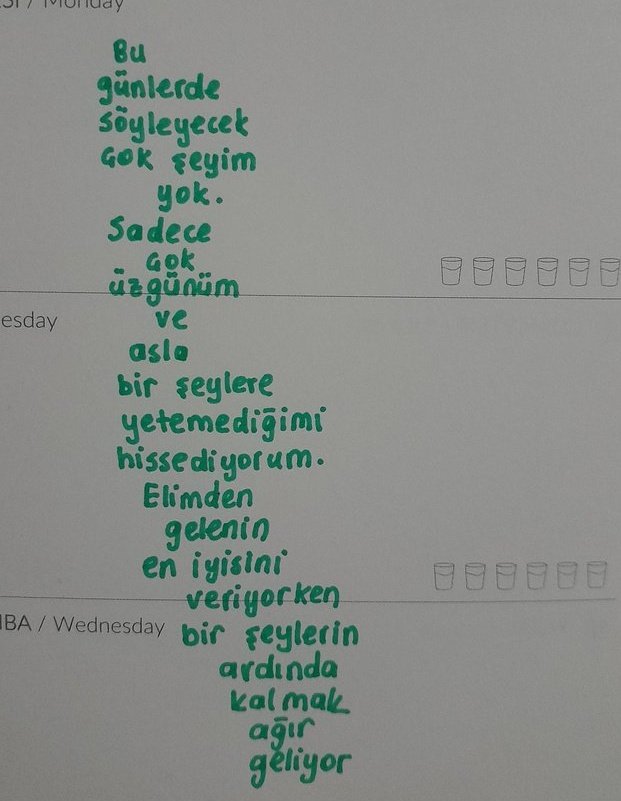 SI / Monday
Bu
günlerde
söyleyecek
çok şeyim
yok.
Sadece
çok
üzgünüm
esday
ve
asla
bir şeylere
yetemediğimi
hissediyorum.
Elimden
gelenin
en iyisini
veriyorken
BA / Wednesday
bir şeylerin
ardında
kalmak
ağır
geliyor